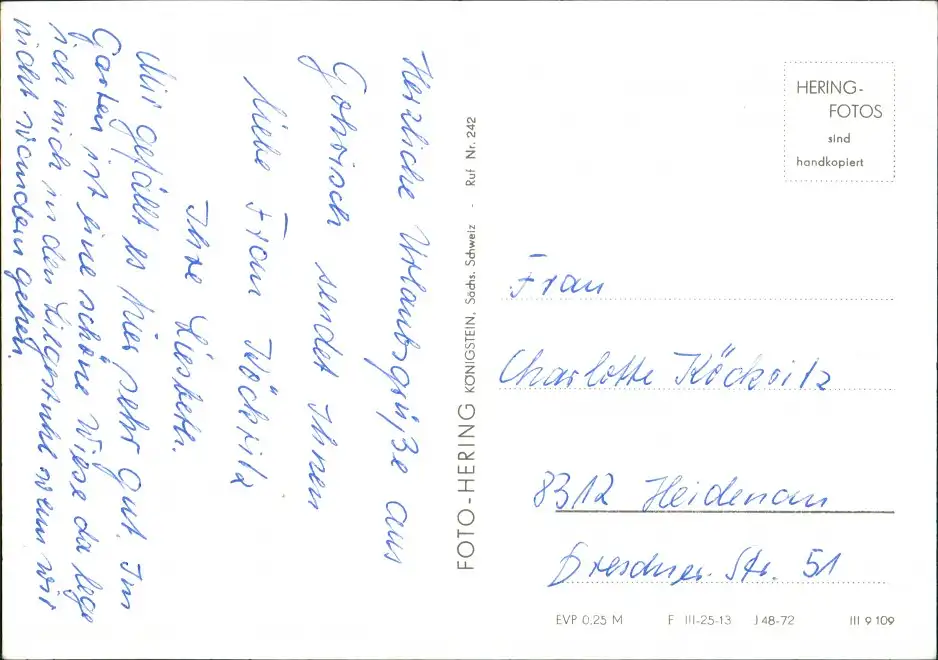 Herzliche Urlaubsgrüße aus
Gohrisch sendet Ihnen
liebe Frau Köckritz
Ihre Liesbeth.
Mir gefällt es hier sehr gut. Im
Garten ist eine schöne Wiese da lege
ich mich in den Liegestuhl wenn wir
nicht wandern gehen.
FOTO-HERING KÖNIGSTEIN, Sächs. Schweiz - Ruf Nr. 242
HERING-
FOTOS
sind
handkopiert
Frau
Charlotte Köckritz
8312 Heidenau
Dresdner. Str. 51
EVP 0,25 M F III-25-13 J 48-72 III 9 109